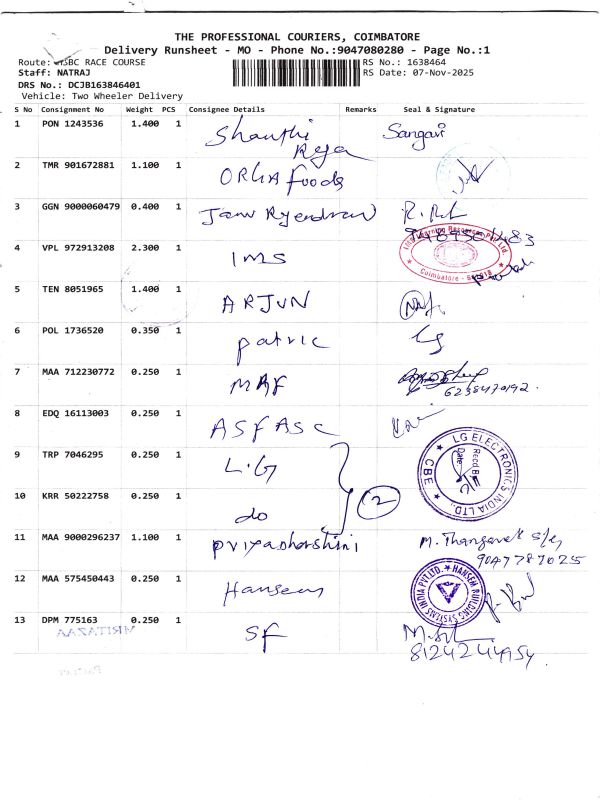 THE PROFESSIONAL COURIERS, COIMBATORE
Delivery Runsheet - MO - Phone No.:9047080280 - Page No.:1
Route: HSBC RACE COURSE
Staff: NATRAJ
DRS No.: DCJB163846401
Vehicle: Two Wheeler Delivery
RS No.: 1638464
RS Date: 07-Nov-2025
S No Consignment No Weight PCS Consignee Details Remarks Seal & Signature
1 PON 1243536 1.400 1 Shanthi Reja Sangavi
2 TMR 901672881 1.100 1 foods
3 GGN 9000060479 0.400 1
4 VPL 972913208 2.300 1 IMS Coimbatore
5 TEN 8051965 1.400 1 ARJUN
6 POL 1736520 0.350 1 patric
7 MAA 712230772 0.250 1 MAF
6238470192.
8 EDQ 16113003 0.250 1 ASFASC
9 TRP 7046295 0.250 1 L.G LG ELECTRONICS INDIA LTD., CBE Recd By Date
10 KRR 50222758 0.250 1 do 2
11 MAA 9000296237 1.100 1 priyadharshini M. Thangavel
9047787025
12 MAA 575450443 0.250 1 Hansem HANSEM BUILDING SYSTEMS INDIA PVT.LTD.
13 DPM 775163 0.250 1 SF
8124244954